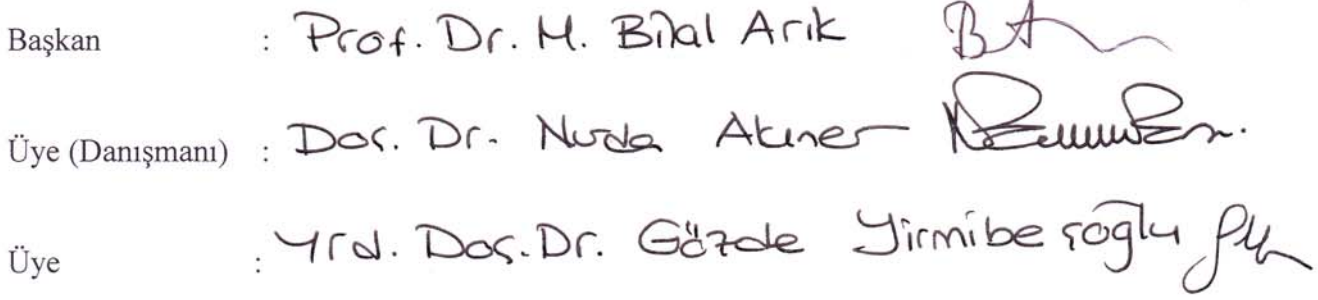 Başkan : Prof. Dr. M. Bilal Arık
Üye (Danışmanı) : Doç. Dr. Nurda Akıner
Üye : Yrd. Doç. Dr. Gözde Yirmibeşoğlu